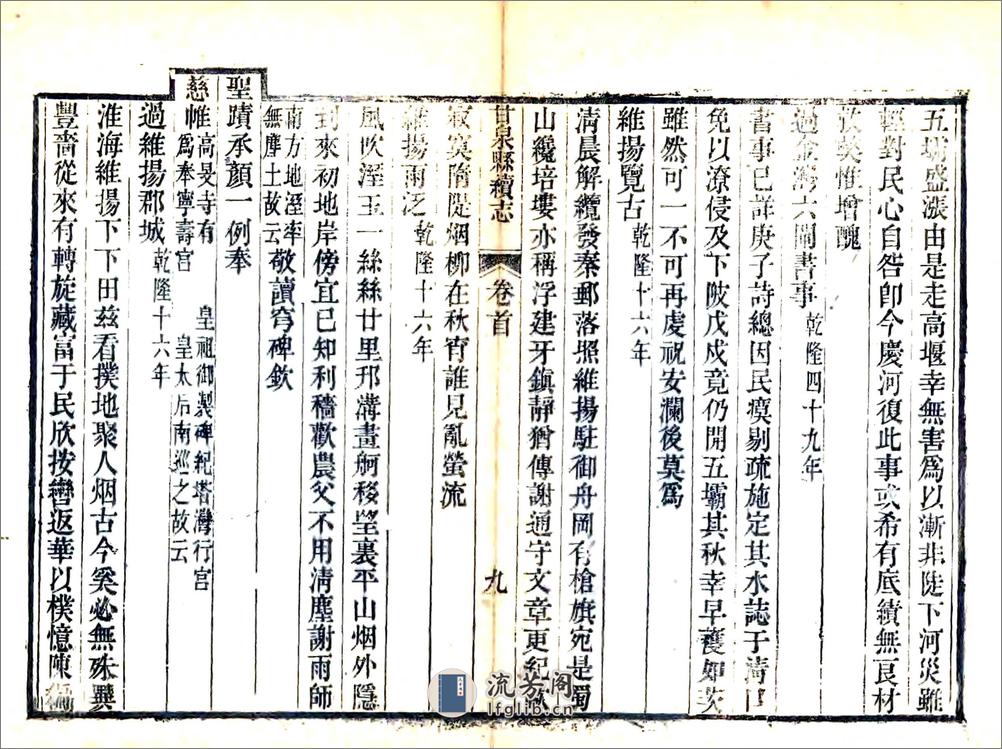 五壩盛漲由是走高堰幸無害為以漸非陡下河災雖
輕對民心自咎卽今慶河復此事或希有底績無良材
惟增醜
過金灣六閘書事乾隆四十九年
書事已詳庚子詩總因民瘼剔疏施定其水誌于清口
免以潦侵及下陂戊戌竟仍開五壩其秋幸早穫如茨
雖然可一不可再虔祝安瀾後莫為
維揚覽古乾隆十六年
淸晨解纜發秦郵落照維揚駐御舟岡有槍旗宛是蜀
山纔培塿亦稱浮建牙鎭靜猶傳謝通守文章更紀歐
寂寞隋隄烟柳在秋宵誰見亂螢流
維揚雨泛乾隆十六年
風吹溼玉一絲絲廿里邗溝畫舸移望裏平山烟外隱
到來初地岸傍宜已知利穡歡農父不用淸塵謝雨師
南方地溼率
無塵土故云敬讀穹碑欽
聖蹟承顏一例奉
慈帷高旻寺有 皇祖御製碑紀塔灣行宮
為奉寧壽宮 皇太后南巡之故云
過維揚郡城乾隆十六年
淮海維揚下下田茲看撲地聚人烟古今奚必無殊異
豐嗇從來有轉旋藏富于民欣按轡返華以樸憶陳編
甘泉縣續志 卷首 九
流芳閣
lfglib.cn